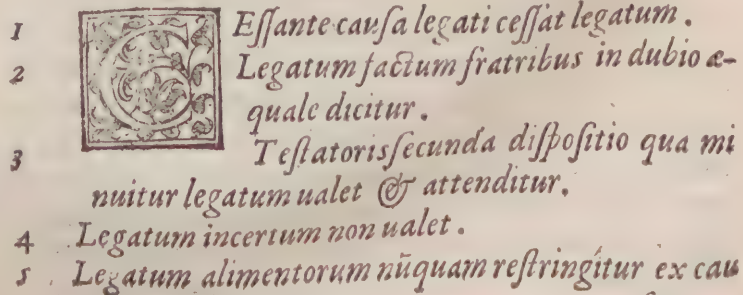 1 CEſſante cauſa legati ceſſat legatum.
2 Legatum factum fratribus in dubio æ-
quale dicitur.
3 Teſtatoris ſecunda diſpoſitio qua mi
nuitur legatum ualet & attenditur.
4 Legatum incertum non ualet.
5 Legatum alimentorum nūquam reſtringitur ex cau